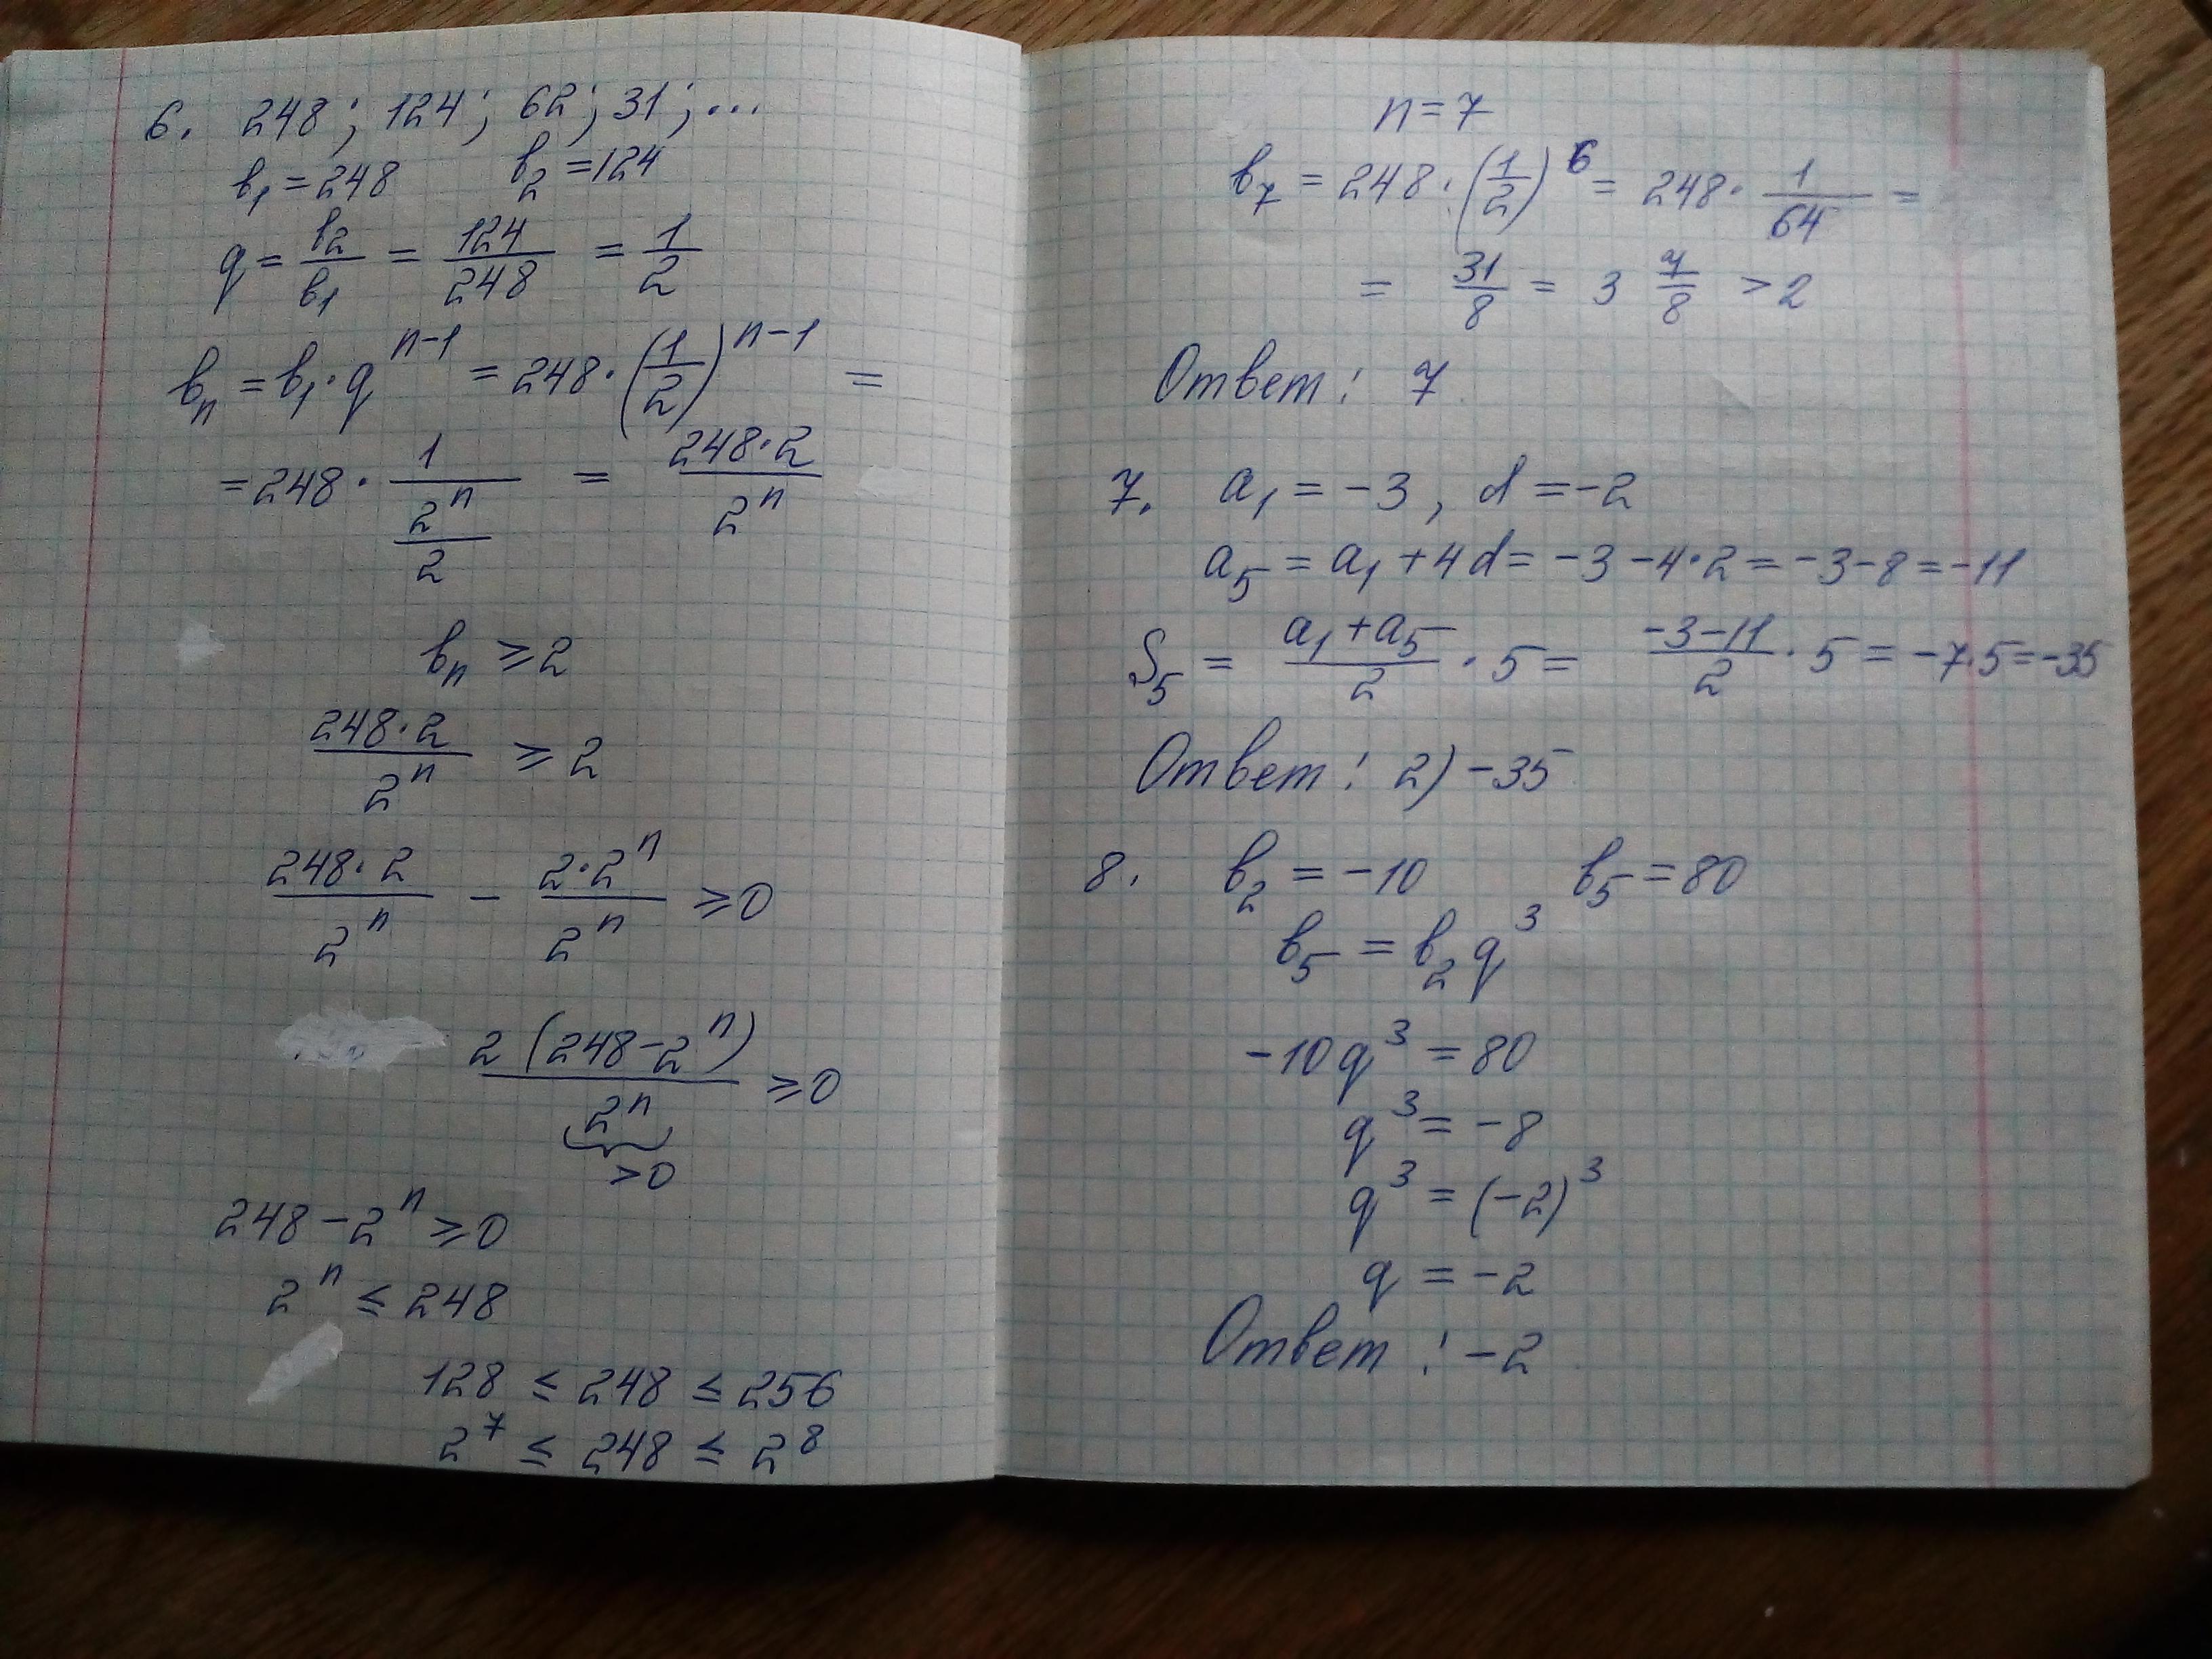 6. 248; 124; 62; 31; ...
b₁ = 248 b₂ = 124
q = b₂/b₁ = 124/248 = 1/2
bₙ = b₁·qⁿ⁻¹ = 248·(1/2)ⁿ⁻¹ =
= 248 · 1/(2ⁿ/2) = 248·2/2ⁿ
bₙ ≥ 2
248·2/2ⁿ ≥ 2
248·2/2ⁿ - 2·2ⁿ/2ⁿ ≥ 0
2(248-2ⁿ)/2ⁿ ≥ 0
>0
248 - 2ⁿ ≥ 0
2ⁿ ≤ 248
128 ≤ 248 ≤ 256
2⁷ ≤ 248 ≤ 2⁸
n = 7
b₇ = 248·(1/2)⁶ = 248·1/64 =
= 31/8 = 3 7/8 > 2
Ответ: 7
7. a₁ = -3, d = -2
a₅ = a₁ + 4d = -3 - 4·2 = -3 - 8 = -11
S₅ = (a₁+a₅)/2 · 5 = (-3-11)/2 · 5 = -7·5 = -35
Ответ: 2) -35
8. b₂ = -10 b₅ = 80
b₅ = b₂q³
-10q³ = 80
q³ = -8
q³ = (-2)³
q = -2
Ответ: -2